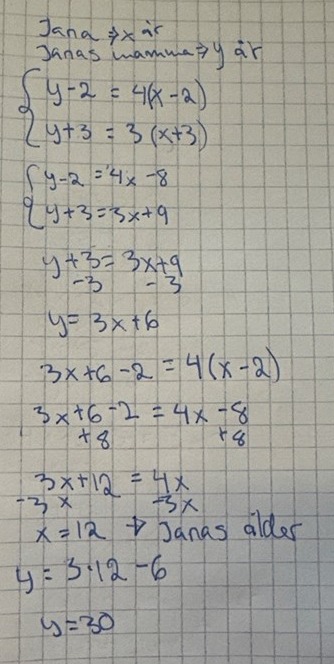 Jana ⇒ x år
Janas mamma ⇒ y år
{ y-2 = 4(x-2)
{ y+3 = 3(x+3)
{ y-2 = 4x-8
{ y+3 = 3x+9
y+3 = 3x+9
-3 -3
y = 3x+6
3x+6-2 = 4(x-2)
3x+6-2 = 4x-8
+8 +8
3x+12 = 4x
-3x -3x
x = 12 → Janas ålder
y = 3·12-6
y = 30